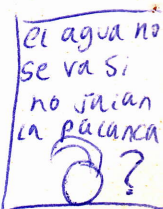 el agua no
se va si
no jalan
la palanca
?